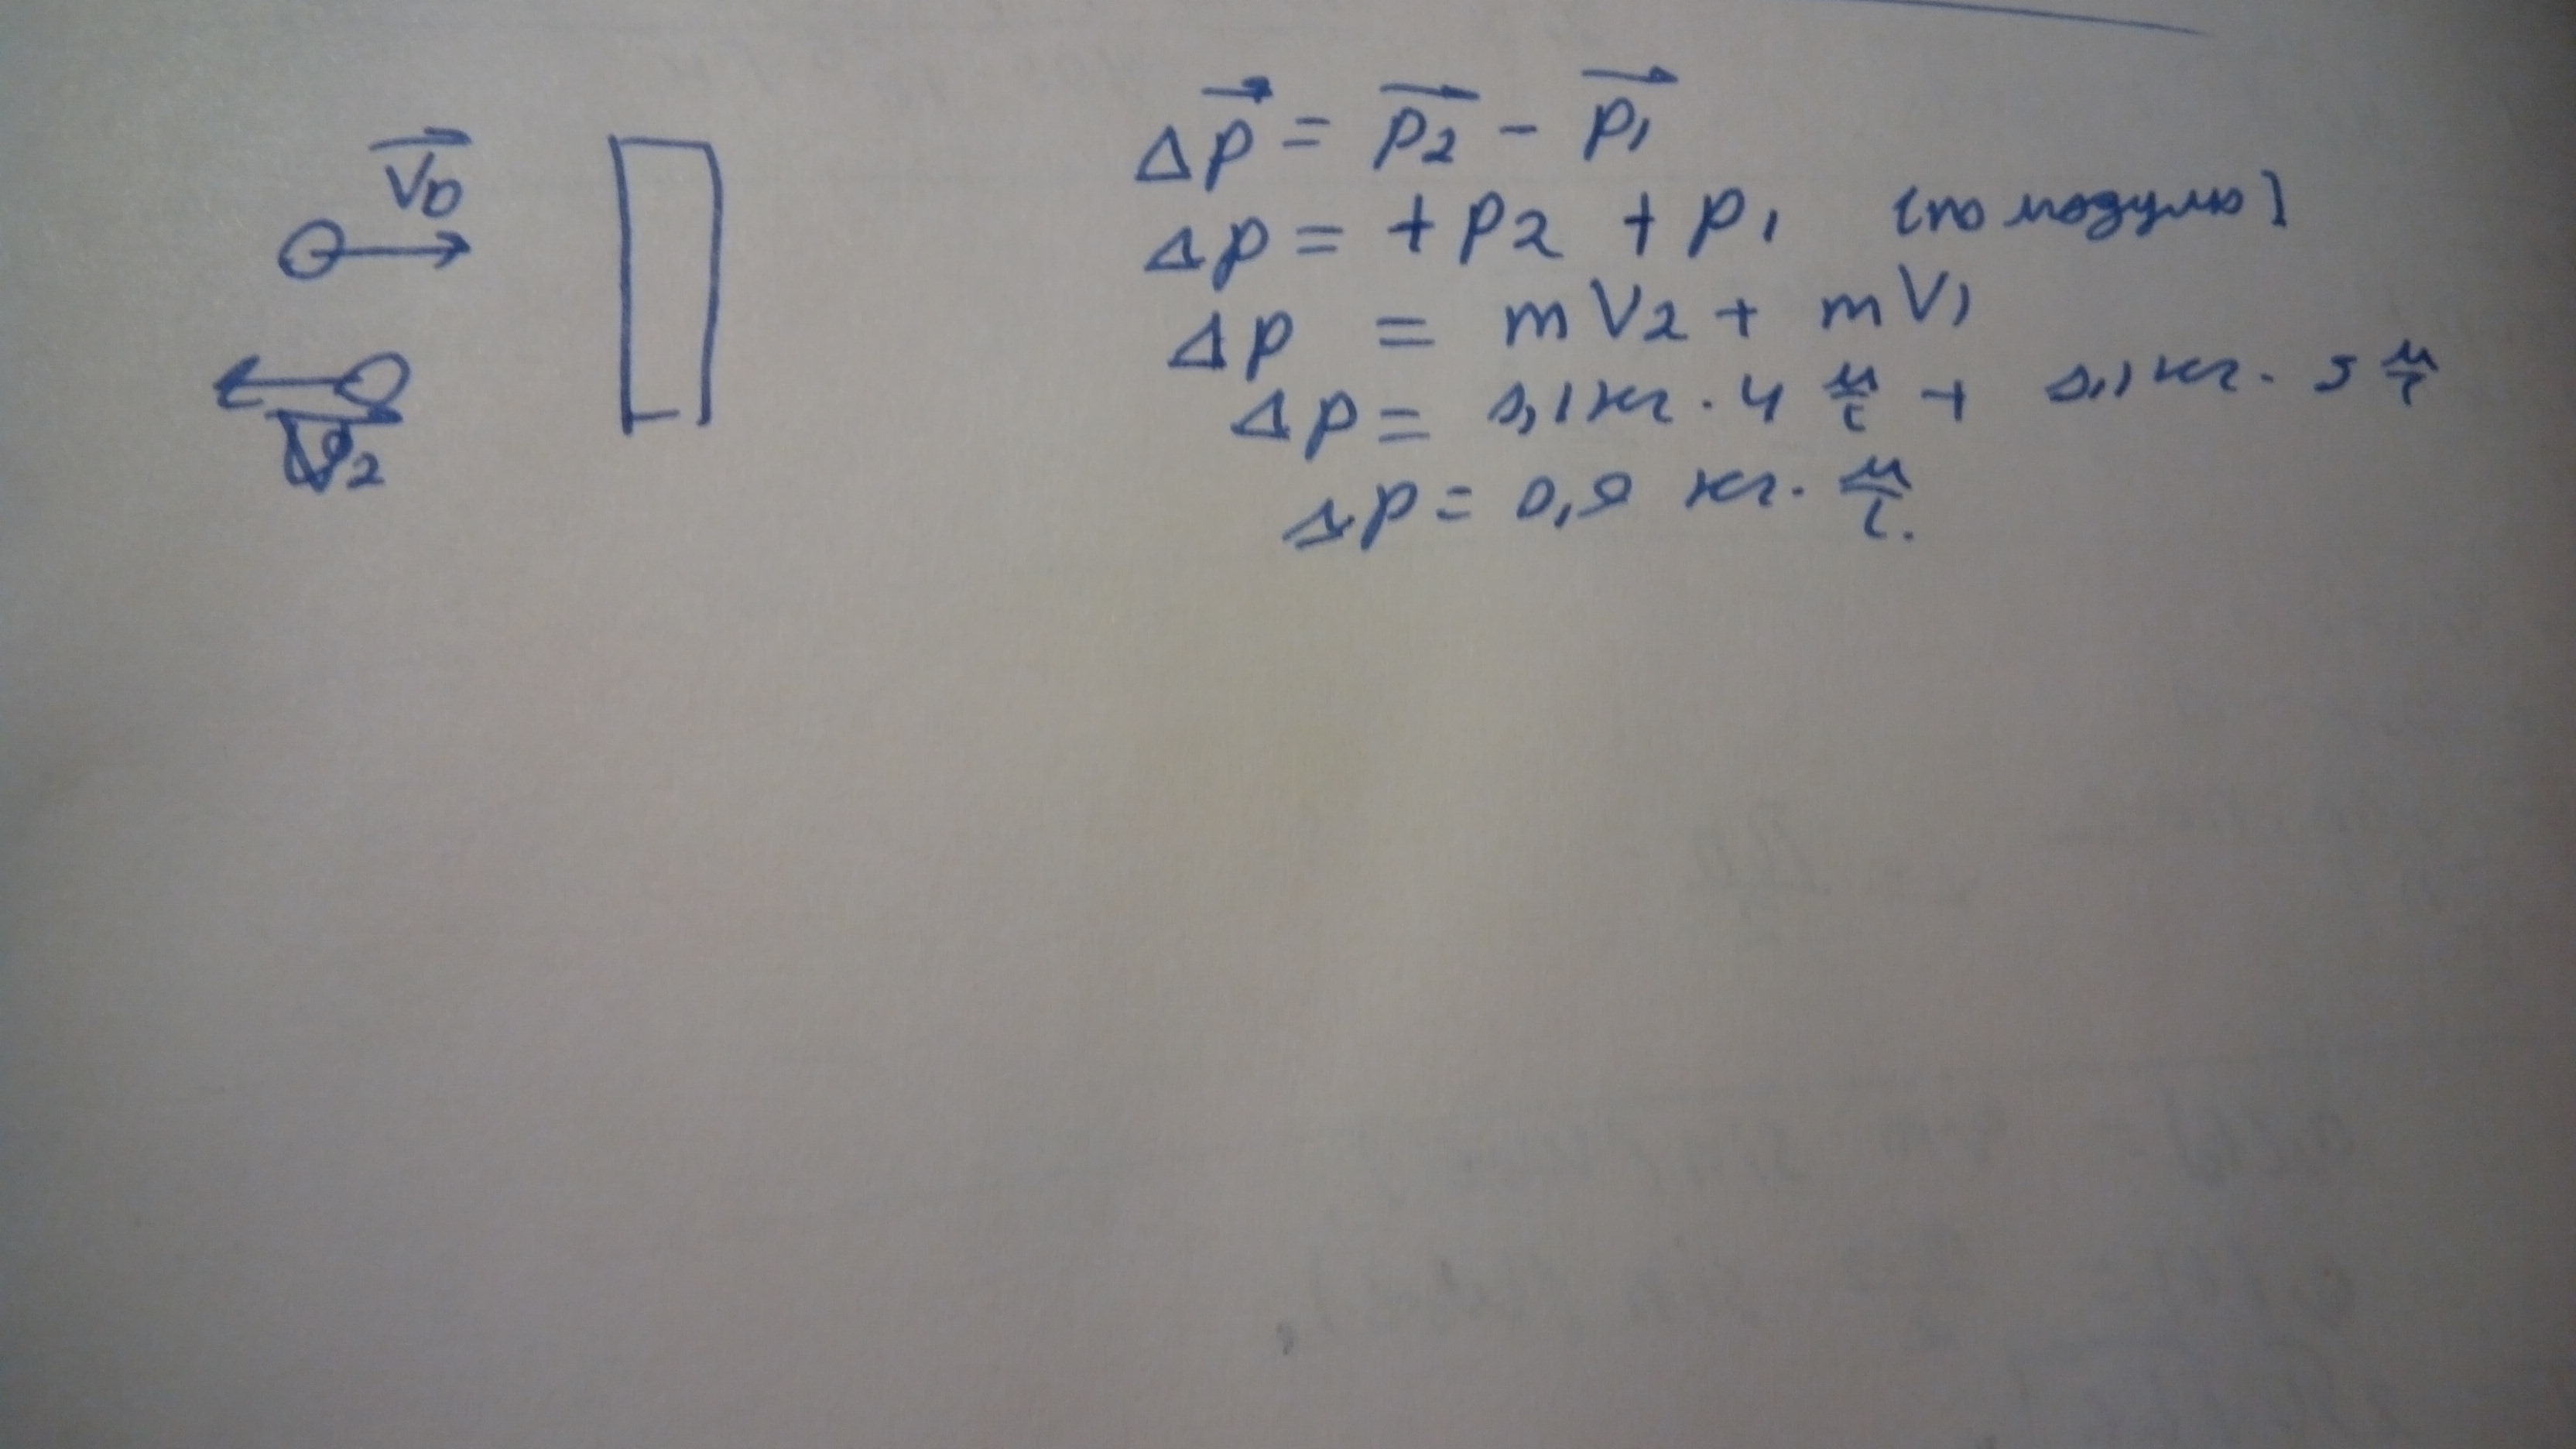 V₀
V₂
Δp = p₂ - p₁
Δp = + p₂ + p₁ (по модулю)
Δp = mV₂ + mV₁
Δp = 0,1 кг · 4 м/с + 0,1 кг · 5 м/с
Δp = 0,9 кг · м/с.